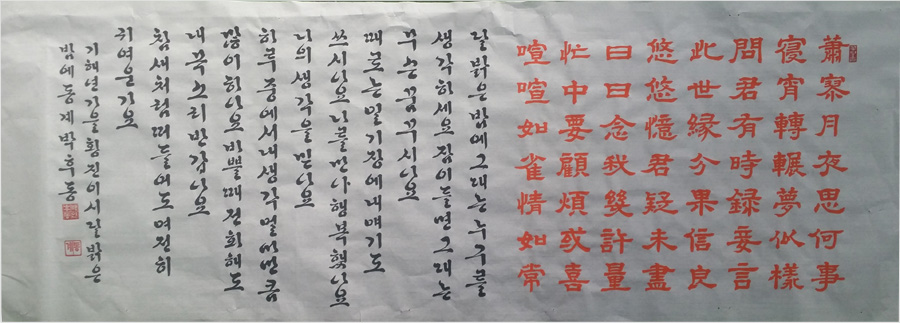 蕭寥月夜思何事
寢宵轉輾夢似樣
問君有時錄妾言
此世緣分果信良
悠悠憶君疑未盡
日日念我幾許量
忙中要顧煩或喜
喧喧如雀情如常
달밝은밤에그대는누구를
생각하세요잠이들면그대는
무슨꿈꾸시나요
때로는일기장에내얘기도
쓰시나요나를만나행복했나요
나의생각을믿나요
하루중에서내생각얼마만큼
많이하나요바쁠때전화해도
내목소리반갑나요
참새처럼떠들어도여전히
귀여운가요
기해년가을황진이시달밝은
밤에동재박후동